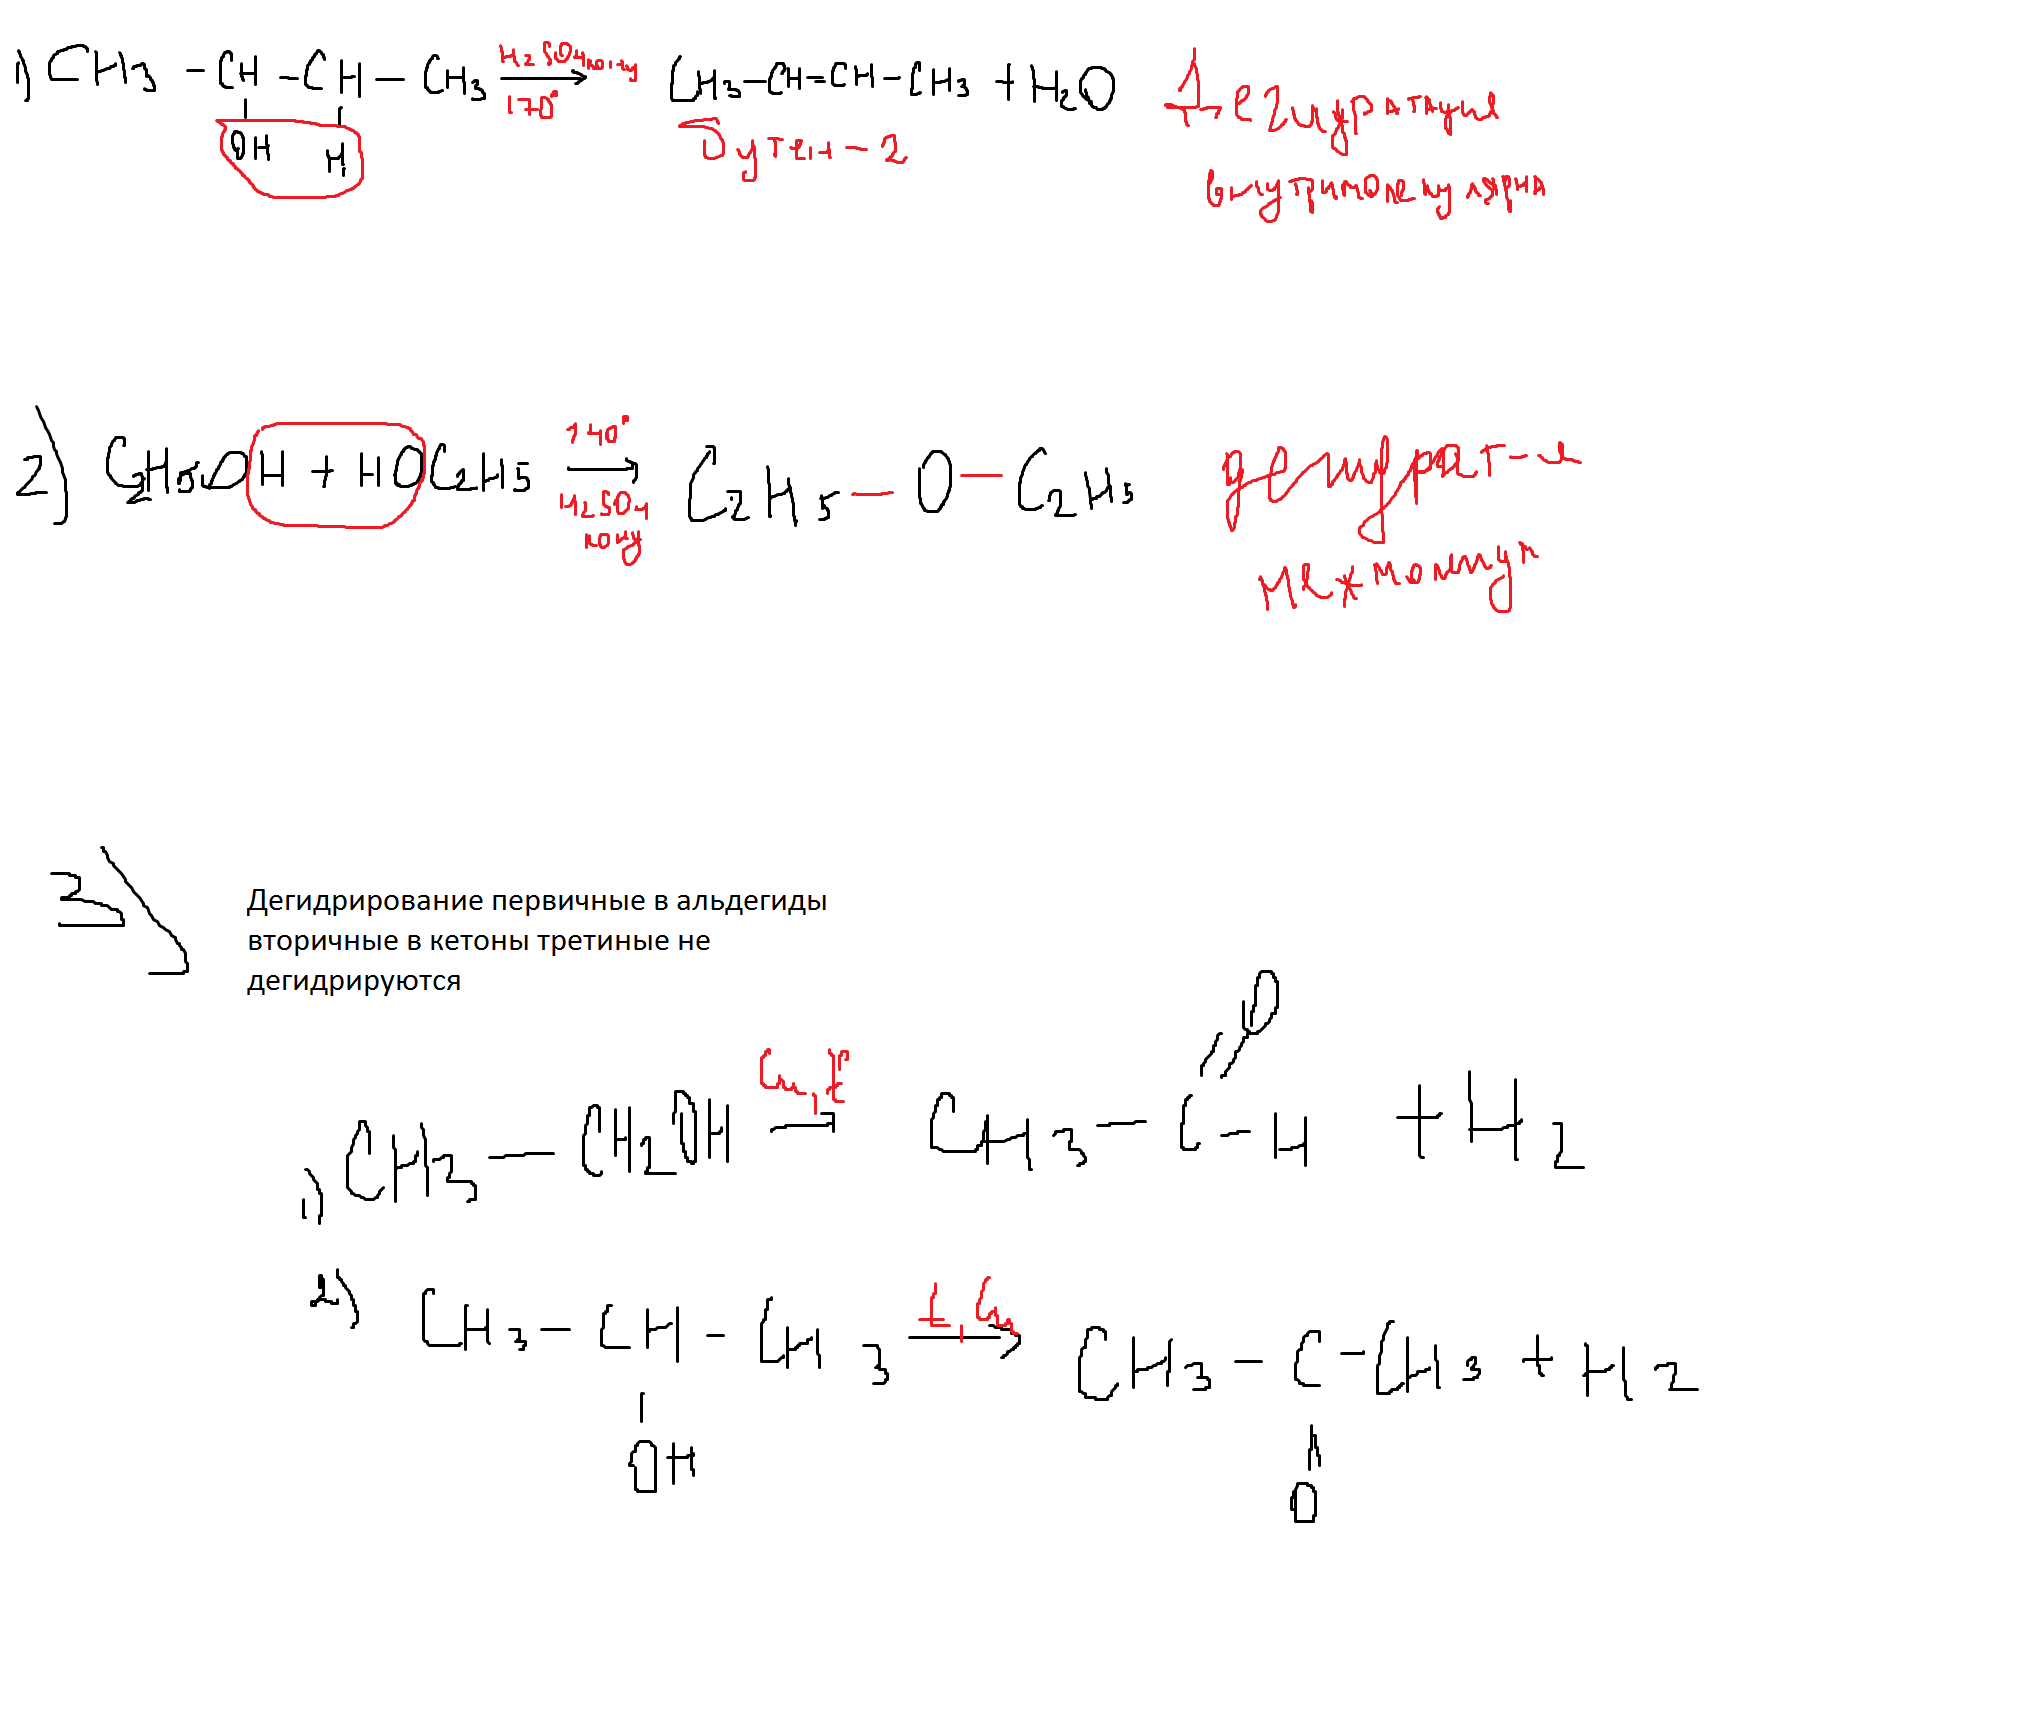 1) CH3 - CH - CH - CH3 H2SO4 конц 170° → CH3 - CH = CH - CH3 + H2O Дегидратация
OH H Бутен-2 внутримолекулярна
2) C2H5OH + HOC2H5 140° → H2SO4 конц C2H5 - O - C2H5
межмолекул
3) Дегидрирование первичные в альдегиды
вторичные в кетоны третиные не
дегидрируются
O
1) CH3 - CH2OH Cu, t° → CH3 - C - H + H2
2) CH3 - CH - CH3 t, Cu → CH3 - C - CH3 + H2
OH O